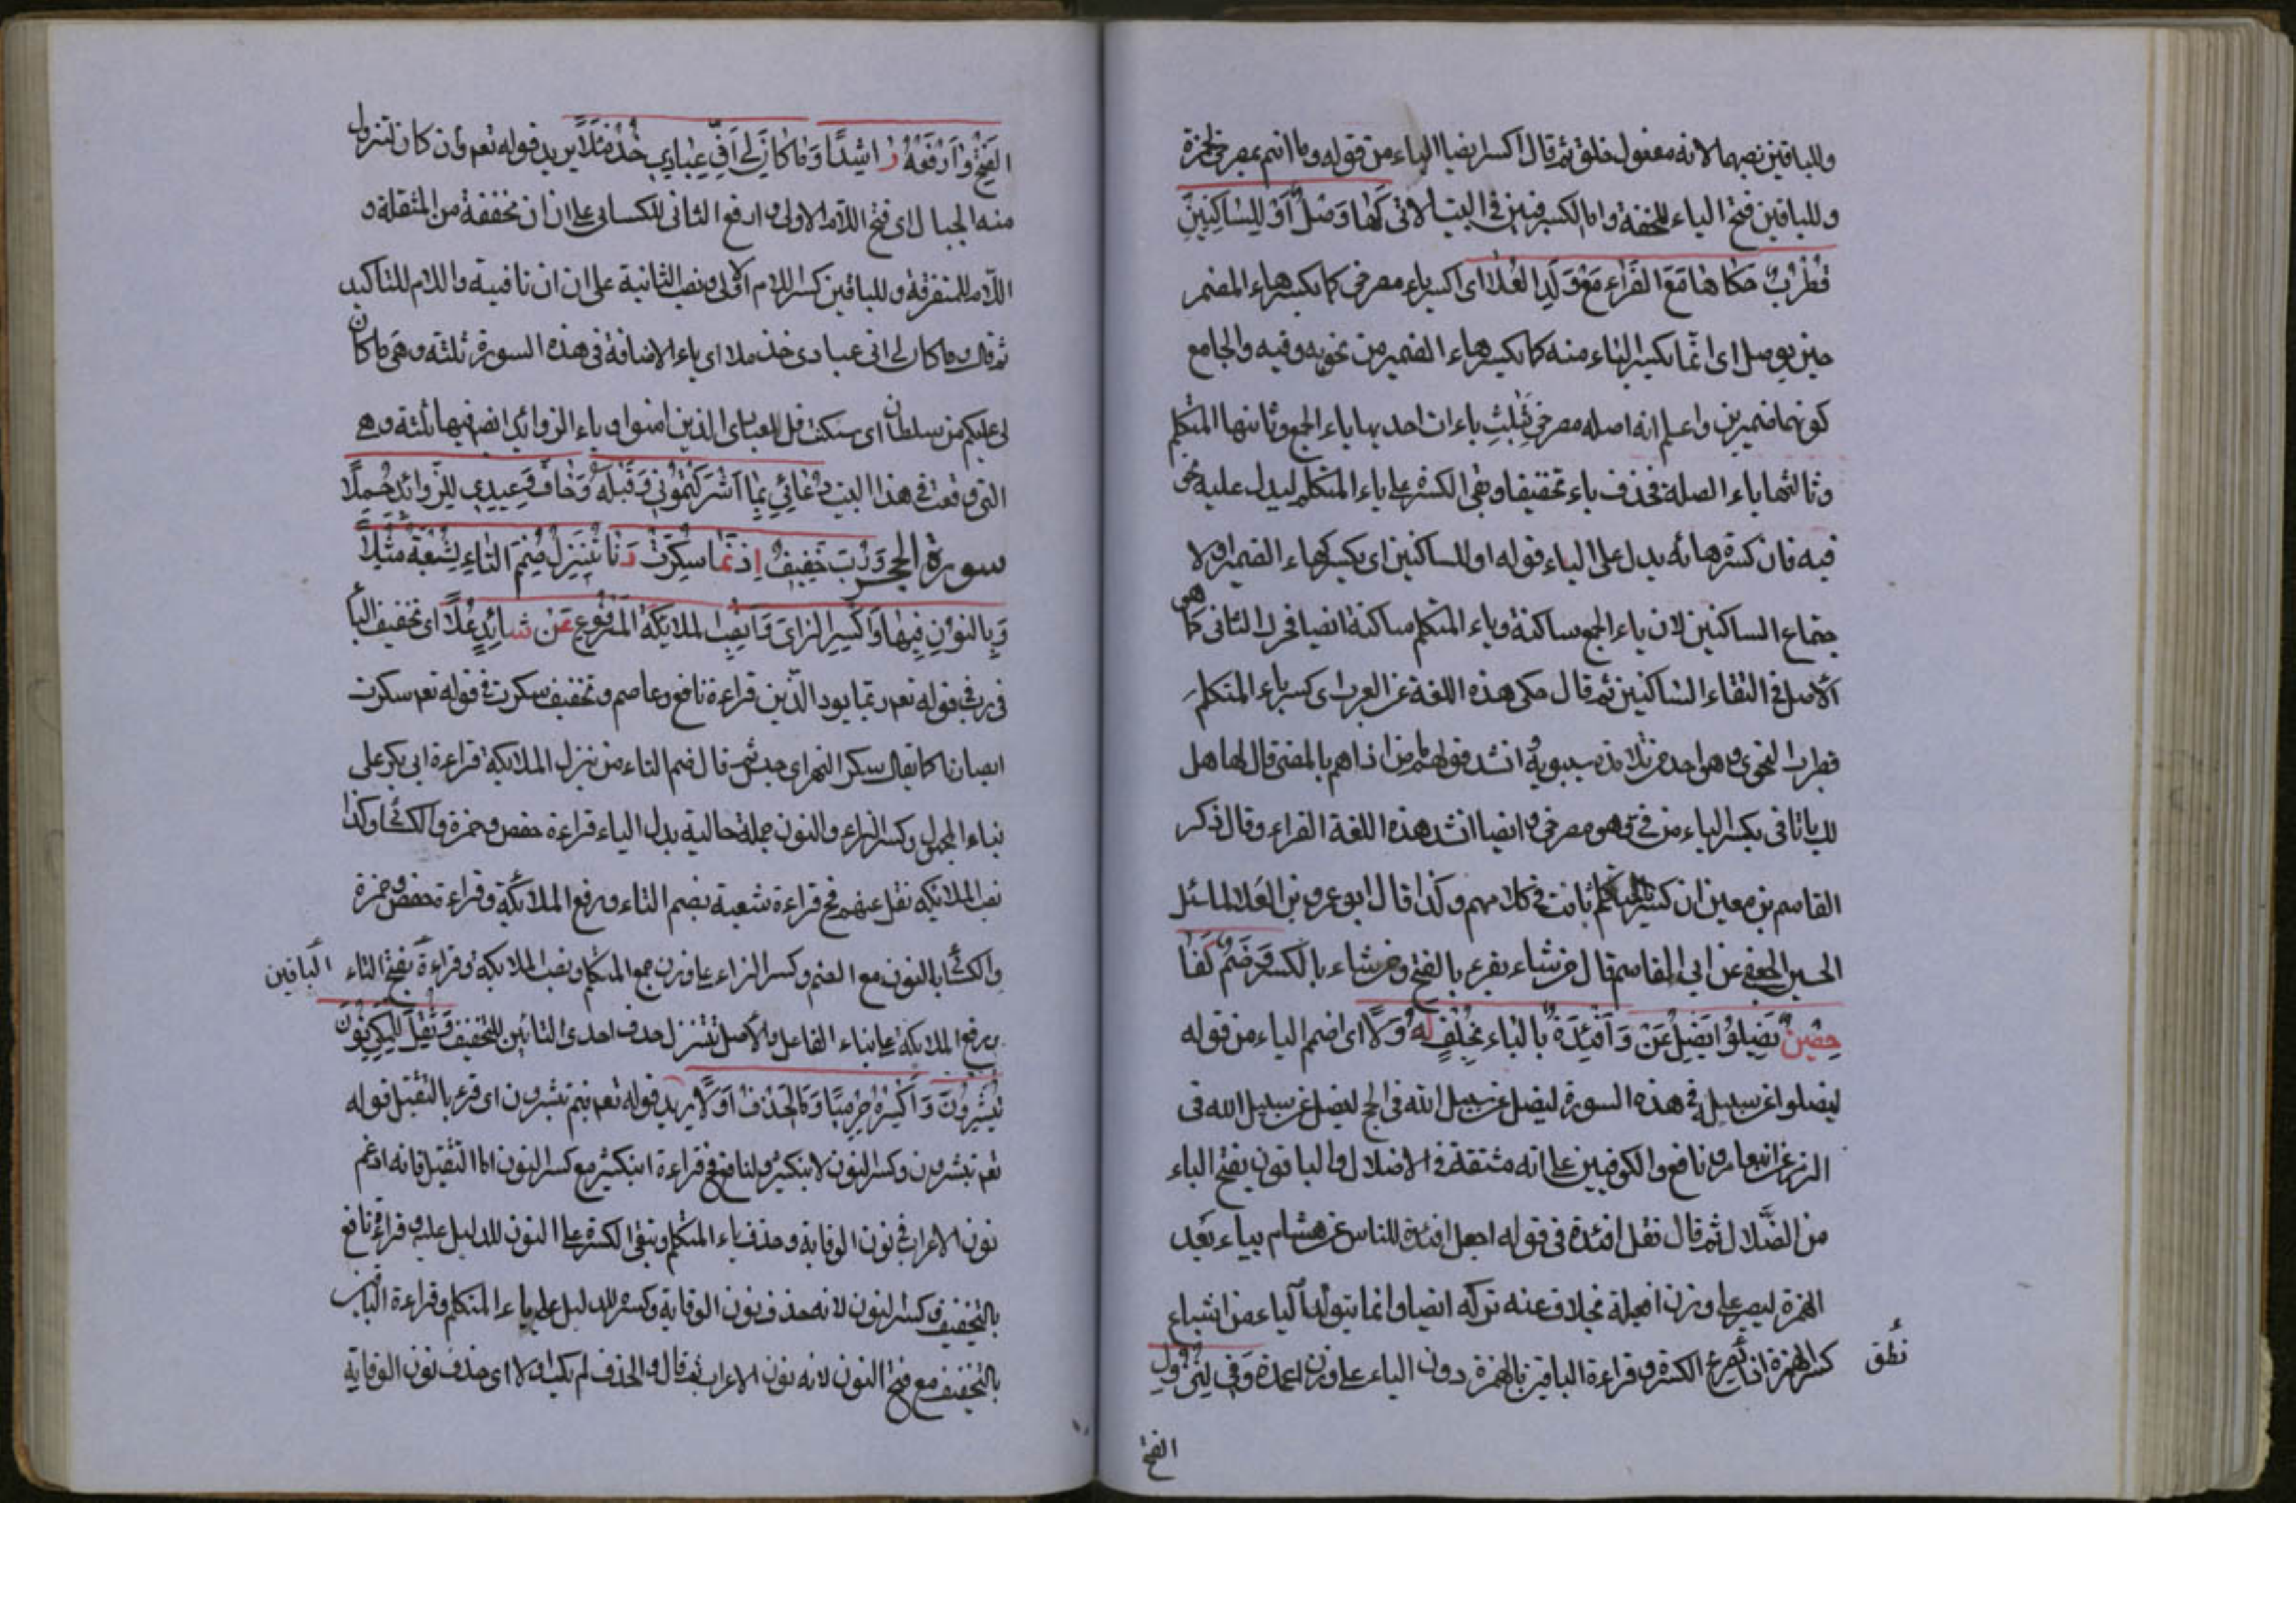 وللباقين نصبها لانه مفعول خلق ثم قال اكسر ايضا الياء من قوله وما انتم بمصرخي لحمزة
وللباقين فتح الياء للخفة واما الكسر فبين في البيت الاتي كَهَا وَصْلٍ اَوْ لِلسَّاكِنَيْنِ
قُطْرُبٌ حَكَاهَا مَعَ الفَرَّاءِ مَعْ وَلَدِ العُلَا اى اكسر ياء مصرخي كما تكسر هاء المضمر
حين يوصل اى انما تكسر الياء منه كما تكسر هاء الضمير من نحو به وفيه والجامع
كونهما ضميرين واعلم انه اصله مصرخي بثلث ياءات احديها ياء الجمع وثانيها المتكلم
وثالثها ياء الصلة فحذف ياء تخفيفا وبقى الكسرة على ياء المتكلم ليدل عليه نحو
فيه فان كسرة هائه يدل على الياء قوله او للساكنين اى يكسر كهاء الضمير او لا
جتماع الساكنين لان ياء الجمع ساكنة وياء المتكلم ساكنة ايضا فحرك الثانى كما هو
الاصل في التقاء الساكنين ثم قال حكى هذه اللغة عن العرب اى كسر ياء المتكلم
قطرب النحوى وهو احد من تلامذه سيبويه وانشد قولهم من اذا هم بالمضى قال لها هل
لك ياتا في بكسر الياء من في وهو مصرخي وايضا انشد هذه اللغة الفراء وقال ذكر
القاسم بن معين ان كسر ثابت في كلامهم وكذا قال ابو عمرو بن العلا لما سئل
الحسين الجعفي عن ابى القاسم قال من شاء يقرء بالفتح ومن شاء بالكسر وَضُمَّ كَفَا
حِصْنٍ يَضِلُّوا يَضِلَّ عَنْ وَاَفْئِدَةً بالْيَاء بِخُلْفٍ لَهُ وَلَا اى اضمم الياء من قوله
ليضلوا عن سبيله في هذه السورة ليضل عن سبيل الله في الحج ليضل عن سبيل الله في
الزمر عن ابن عامر ونافع والكوفيين على انه مشتقة من الاضلال والباقون بفتح الياء
من الضلال ثم قال نقل افئدة في قوله اجعل افئدة للناس عن هشام بياء بعد
الهمزة ليصير على وزن افعيلة بخلاف عنه تركه ايضا وانما يتولد الياء من اشباع
كسر الهمزة اذا الكسرة وقراءة الباقين بالهمزة دون الياء على وزن وَفِي لِتَزُولَ
نطق
الفتح
الفَتْحُ وَارْفَعْهُ رَاشِدًا وَمَا كَانَ لِي اِنِّي عِبَادِي خُذْ مُلَا يريد قوله تعم وان كان لتزول
منه الجبال اى فتح اللام الاولى وارفع الثانى للكسائى على ان ان مخففة من المثقلة و
اللام للمتفرقة وللباقين كسر اللام الاولى ونصب الثانية على ان ان نافية واللام للتاكيد
ثم قال وما كان لى انى عبادى خذ ملا اى ياء الاضافة في هذه السورة ثلثة وهى ما كان
لى عليكم من سلطان انى سكنت قل لعبادى الذين امنوا وياء الزوائد ايضا فيها ثلثة وهى
التى وقعت في هذا البيت دُعَائِي بِمَا اَشْرَكْتُمُونِي وَقَبْلَهُ وَخَافَ وَعِيدِي لِلزَّوَائِدِ جُمِّلَا
سورة الحجر وَرُبَّ خَفِيفٌ اِذْ نَمَا سُكِّرَتْ دَنَا تُنَزَّلُ ضَمُّ التَّاءِ لِشُعْبَةَ مُثِّلَا
وَبِالنُّونِ فِيهَا وَاكْسِرِ الزَّاىَ وَانْصِبِ المَلَائِكَةَ المَرْفُوعَ عَنْ شَائِدٍ عُلَا اى تخفيف الباء
في رب في قوله تعم ربما يود الذين قراءة نافع وعاصم وتخفيف سكرت في قوله تعم سكرت
ابصارنا كما يقال سكر النهر اى حبس ثم قال ضم التاء من تنزل الملائكة قراءة ابى بكر على
بناء المجهول وكسر الزاء والنون جملة حالية بدل الياء قراءة حفص وحمزة والكسائى وكذا
نصب الملائكة نقل عنهم فح قراءة شعبة بضم التاء ورفع الملائكة وقراءة حفص وحمزة
والكسائى بالنون مع الضم وكسر الزاء على وزن جمع المتكلم ونصب الملائكة وقراءة بفتح التاء الباقين
ورفع الملائكة على بناء الفاعل والاصل تتنزل حذف احدى التائين للتخفيف وَثُقِّلَ لِلْمَكِّيِّ نُونُ
تُبَشِّرُونَ وَاكْسِرْهُ حِرْمِيًّا وَمَا الحَذْفُ اَوَّلَا يريد قوله تعم فبم تبشرون اى قرء بالتثقيل قوله
تعم تبشرون وكسر النون لابن كثير ولنافع في قراءة ابن كثير مع كسر النون اما التثقيل فانه ادغم
نون الاعراب في نون الوقاية وحذف ياء المتكلم وبقى الكسرة على النون للدليل عليه وقراءة نافع
بالتخفيف وكسر النون لانه حذف نون الوقاية وكسره للدليل على ياء المتكلم وقراءة الباقين
بالتخفيف مع فتح النون لانه نون الاعراب ثم قال والحذف لم يكن اولا اى حذف نون الوقاية